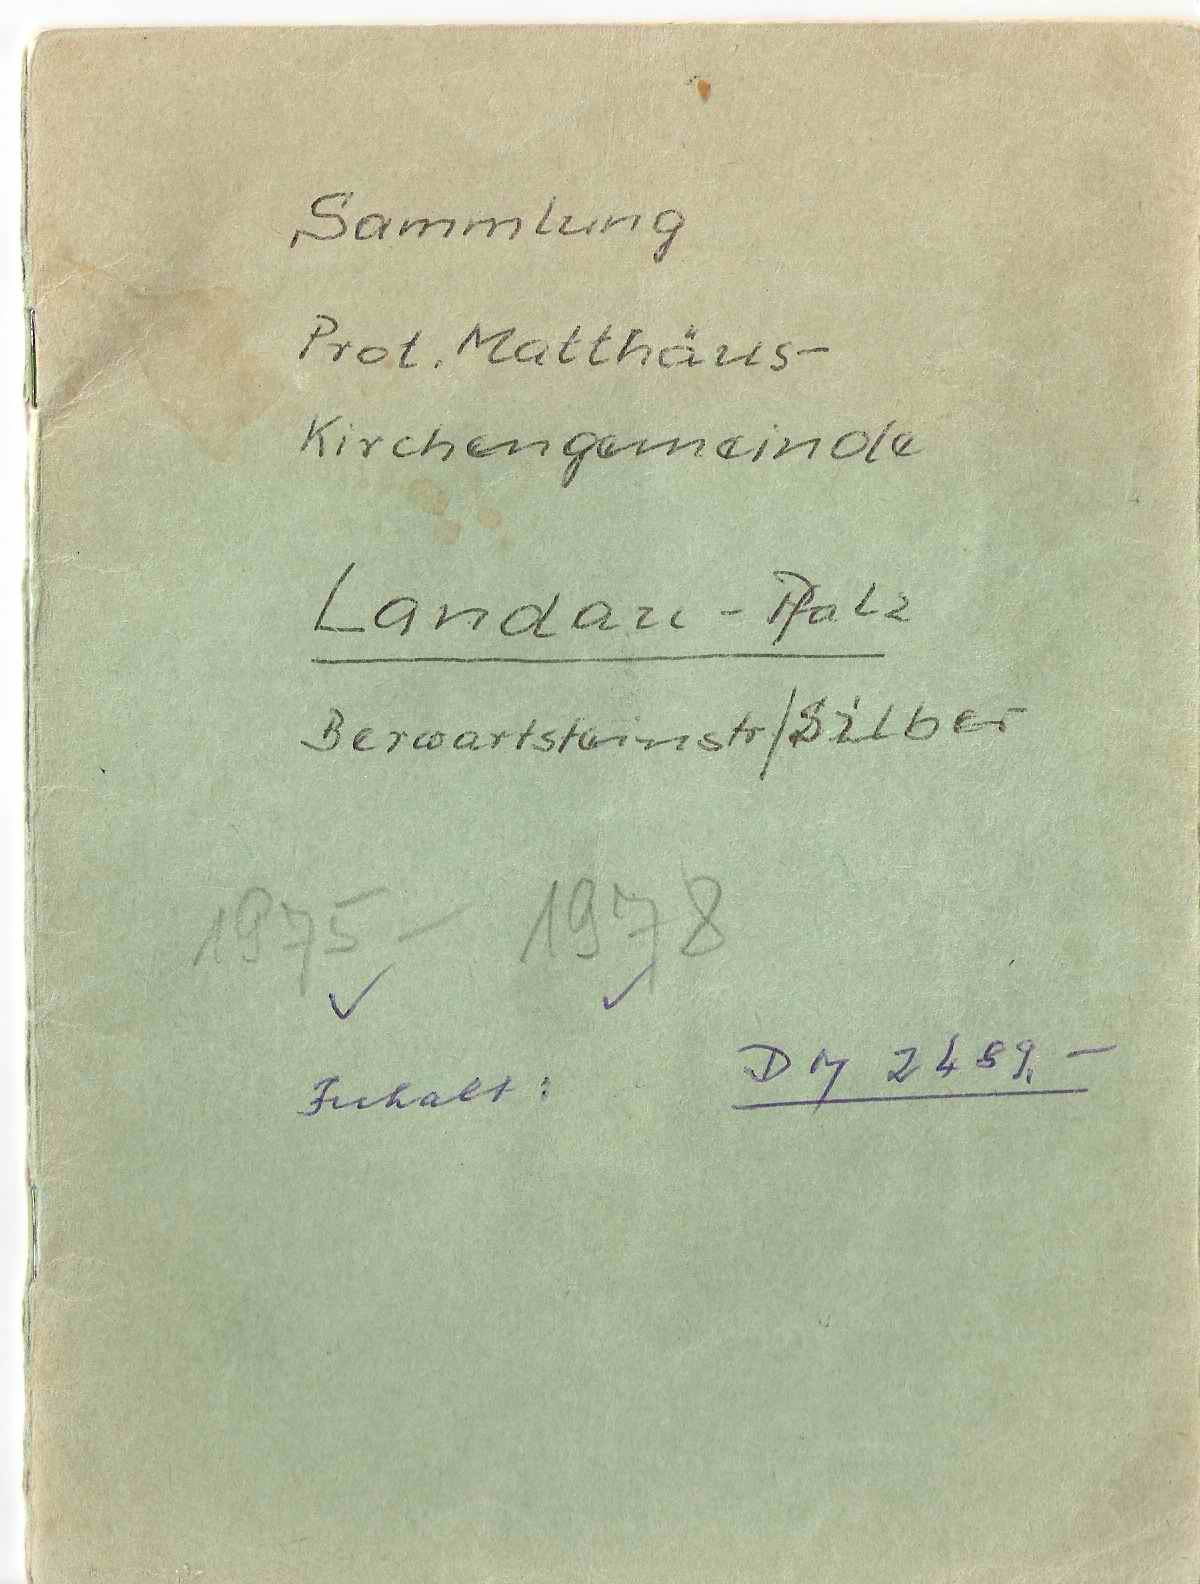 Sammlung
Prot. Matthäus-
Kirchengemeinde
Landau - Pfalz
Berwartsteinstr/Silber
1975 - 1978
Inhalt: DM 2489,-